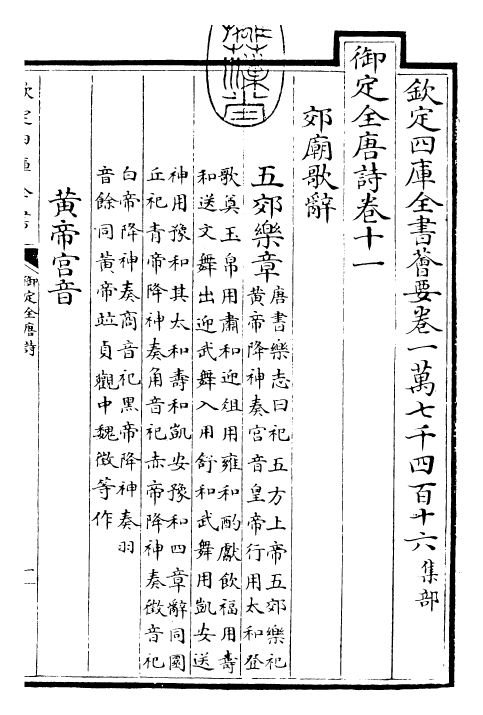 欽定四庫全書薈要卷一萬七千四百十六 集部
御定全唐詩卷十一
郊廟歌辭
五郊樂章 唐書樂志曰祀五方上帝五郊樂祀
黄帝降神奏宫音皇帝行用太和登
歌奠玉帛用肅和迎俎用雍和酌獻飲福用壽
和送文舞出迎武舞入用舒和武舞用凱安送
神用豫和其太和壽和凱安豫和四章辭同圜
丘祀青帝降神奏角音祀赤帝降神奏徵音祀
白帝降神奏商音祀黑帝降神奏羽
音餘同黄帝竝貞觀中魏徵等作
黄帝宫音
御定全唐詩